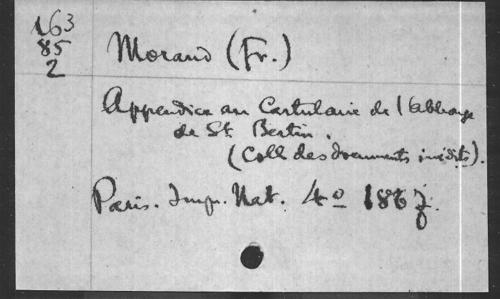 163
85
2
Morand (Fr.)
Appendice au Cartulaire de l'abbaye
de St. Bertin.
(Coll. des documents inédits).
Paris. Imp. Nat. 4º 1867.